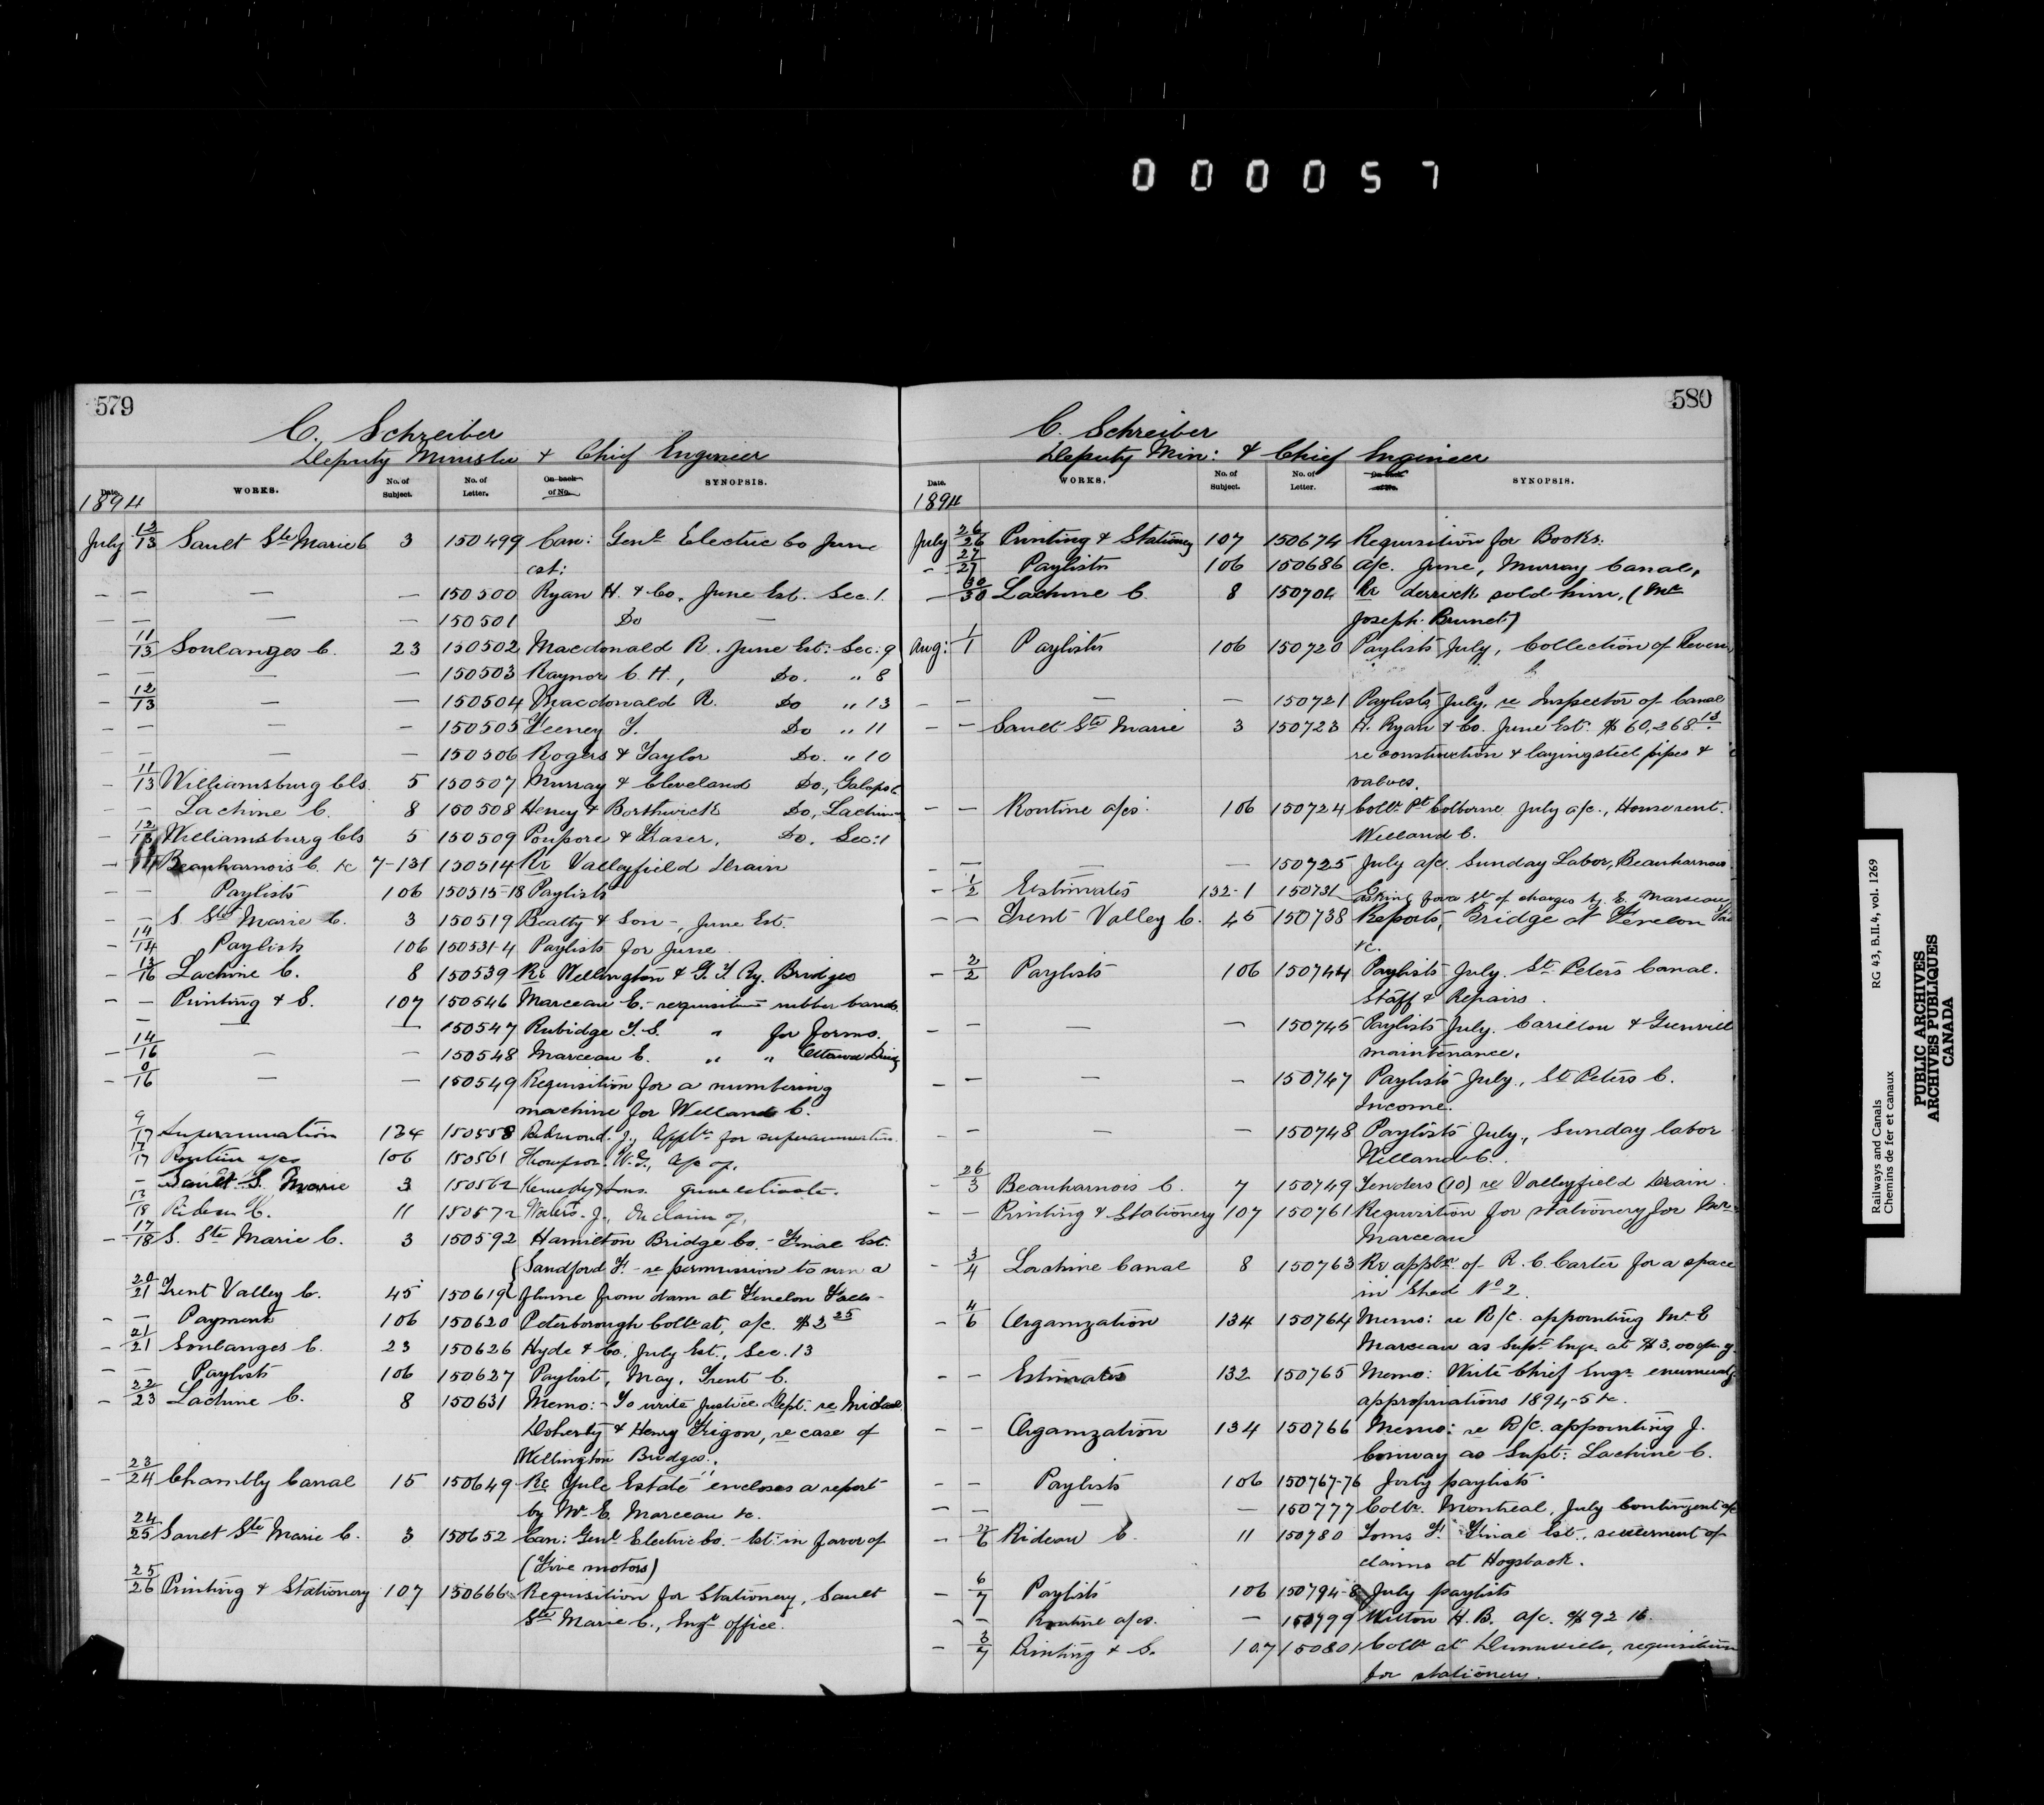 000057
579
C. Schreiber
Deputy Minister & Chief Engineer
Date. WORKS. No. of Subject. No. of Letter. On back of No. SYNOPSIS.
1894
July 12/13 Sault Ste Marie C 3 150499 Can: Genl. Electric Co June
est:
— — — — 150500 Ryan H. & Co. June Est. Sec. 1.
— — — — 150501 Do —
11/13 Soulanges C. 23 150502 Macdonald R. June Est: Sec: 9
— — — — 150503 Raynor C. H., Do. " 8
— 12/13 — — 150504 Macdonald R. Do " 13
— — — — 150505 Feeney T. Do " 11
— — — — 150506 Rogers & Taylor Do. " 10
— 11/13 Williamsburg Cls. 5 150507 Murray & Cleveland Do., Galops C.
— — Lachine C. 8 150508 Heney & Borthwick Do, Lachine
12/13 Williamsburg Cls 5 150509 Poupore & Fraser, Do. Sec: 1
— Beauharnois C. &c 7-131 150514 Re Valleyfield Drain
— — Paylists 106 150515-18 Paylists
— — S Ste Marie C. 3 150519 Beatty & Son -, June Est.
— 14/14 Paylists 106 150531-4 Paylists for June
— 13/16 Lachine C. 8 150539 Re Wellington & G. T. Ry. Bridges
— — Printing & S. 107 150546 Marceau E. - requisition rubber bands
— — — 150547 Rubidge T. S. " for forms.
— 14/16 — — 150548 Marceau E. " " Ottawa
— 16 — — 150549 Requisition for a numbering
machine for Welland C.
9/17 Superannuation 134 150558 Redmond. J., Applt. for superannuation.
17 Routine a/cs 106 150561 Thompson. W. G., a/c of.
— Sault S. Marie 3 150562 Kennedy & Sons. June estimate.
18 Rideau C. 11 150572 Waters. J., On claim of,
— 17/18 S. Ste Marie C. 3 150592 Hamilton Bridge Co. - Final Est.
Sandford F. - re permission to run a
20/21 Trent Valley C. 45 150619 flume from dam at Fenelon Falls -
— — Payment 106 150620 Peterborough Collr at, a/c. $3 25
— 21/21 Soulanges C. 23 150626 Hyde & Co. July Est., Sec. 13
— — Paylists 106 150627 Paylist, May, Trent C.
— 22/23 Lachine C. 8 150631 Memo: - To write Justice Dept. re Michael
Doherty & Henry Trigon, re case of
Wellington Bridges.
— 23/24 Chambly Canal 15 150649 Re "Yule Estate" encloses a report
by Mr. E. Marceau &c.
24/25 Sault Ste Marie C. 3 150652 Can: Genl. Electric Co. - Est. in favor of
(Five motors)
25/26 Printing & Stationery 107 150666 Requisition for Stationery, Sault
Ste Marie C., Engr office.
580
C. Schreiber
Deputy Min: & Chief Engineer
Date. WORKS. No. of Subject. No. of Letter. On back of No. SYNOPSIS.
1894
July 26/26 Printing & Stationery 107 150674 Requisition for Books.
— 27/27 Paylists 106 150686 a/c. June, Murray Canal.
— 30/30 Lachine C. 8 150702 Re derrick sold him, (Mr
Joseph Brunet)
Aug: 1/1 Paylists 106 150720 Paylists July, Collection of Revenue
— — — — 150721 Paylists July, re Inspector of Canal
— — Sault Ste Marie 3 150723 H. Ryan & Co. June Est. $60,268 13.
re construction & laying steel pipes &
valves.
— — Routine a/cs. 106 150724 Collr. Pt Colborne July a/c., House rent.
Welland C.
— — — 150725 July a/c. Sunday Labor, Beauharnois
— 1/2 Estimates 132-1 150731 Asking for a St. of charges by E. Marceau
— — Trent Valley C. 45 150738 Reports, Bridge at Fenelon Falls
&c.
— 2/2 Paylists 106 150744 Paylists July. St. Peters Canal.
Staff & Repairs.
— — — — 150745 Paylists July. Carillon & Grenville
maintenance.
— — — — 150747 Paylists July, St. Peters C.
Income.
— — — — 150748 Paylists July, Sunday labor
Welland C.
— 26/3 Beauharnois C. 7 150749 Tenders (10) re Valleyfield Drain.
— — Printing & Stationery 107 150761 Requisition for stationery for Mr.
Marceau
— 3/4 Lachine Canal 8 150763 Re appln. of R. C. Carter for a space
in Shed No 2.
— 4/6 Organization 134 150764 Memo: re R/C. appointing Mr. E
Marceau as Supt. Engr. at $3,000 per y.
— — Estimates 132 150765 Memo: Write Chief Engr. enumeratg
appropriations 1894-5 &c.
— — Organization 134 150766 Memo: re R/C. appointing J.
Conway as Supt: Lachine C.
— — Paylists 106 150767-76 July paylists
— — — — 150777 Collr. Montreal, July Contingent a/c
— 6 Rideau C. 11 150780 Toms F. Final Est., settlement of
claims at Hogsback.
— 6/7 Paylists 106 150794-8 July paylists
— — Routine a/cs. — 150799 Witton H. B. a/c. $92.16.
— 3/7 Printing & S. 107 150801 Collr at Dunnville, requisition
for stationery.
Railways and Canals RG 43, B.II.4, vol. 1269
Chemins de fer et canaux
PUBLIC ARCHIVES
ARCHIVES PUBLIQUES
CANADA